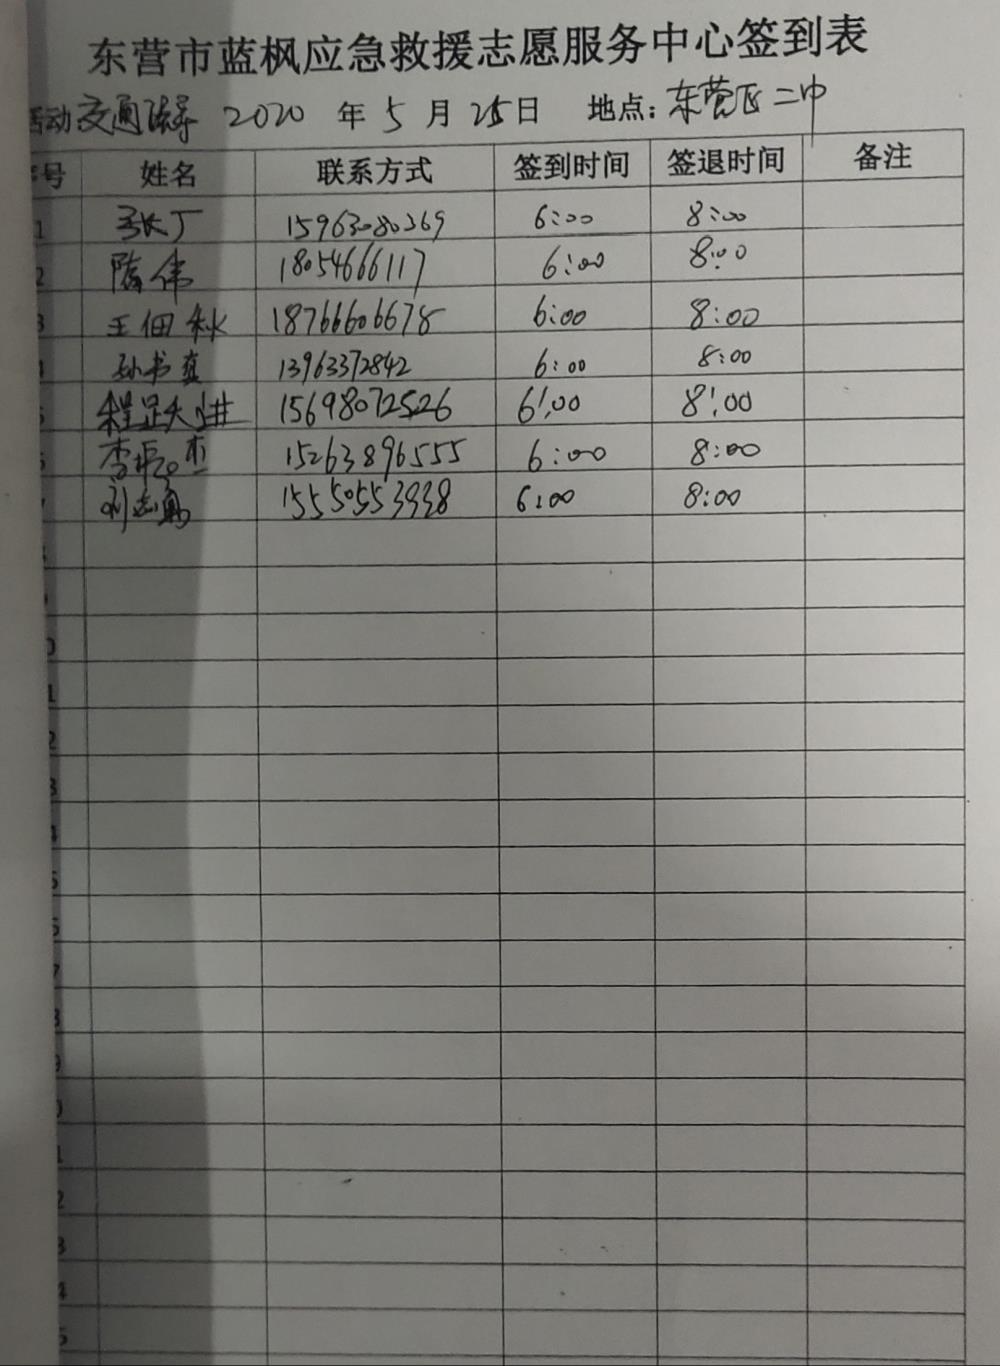 东营市蓝枫应急救援志愿服务中心签到表
活动 交通疏导 2020 年 5 月 25 日 地点: 东营区二中
序号 姓名 联系方式 签到时间 签退时间 备注
1 张丁 15963080369 6:00 8:00
2 隋伟 18054666117 6:00 8:00
3 王佃秋 18766606678 6:00 8:00
孙书 13963372842 6:00 8:00
5 程 15698072526 6:00 8:00
6 李振杰 15263896555 6:00 8:00
7 刘志勇 15550553938 6:00 8:00
0
1
2
3
4
5
6
7
8
9
0
1
2
3
4
5